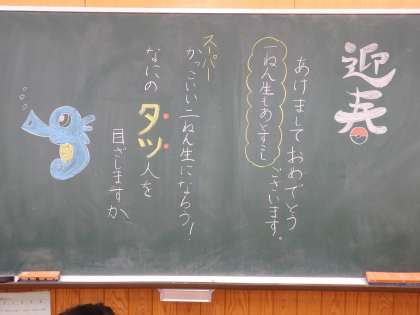 迎春
あけましておめでとう
ございます。
一ねん生もあとすこし
スーパー
かっこいい二ねん生になろう!
なにの
タツ人を
目ざしますか